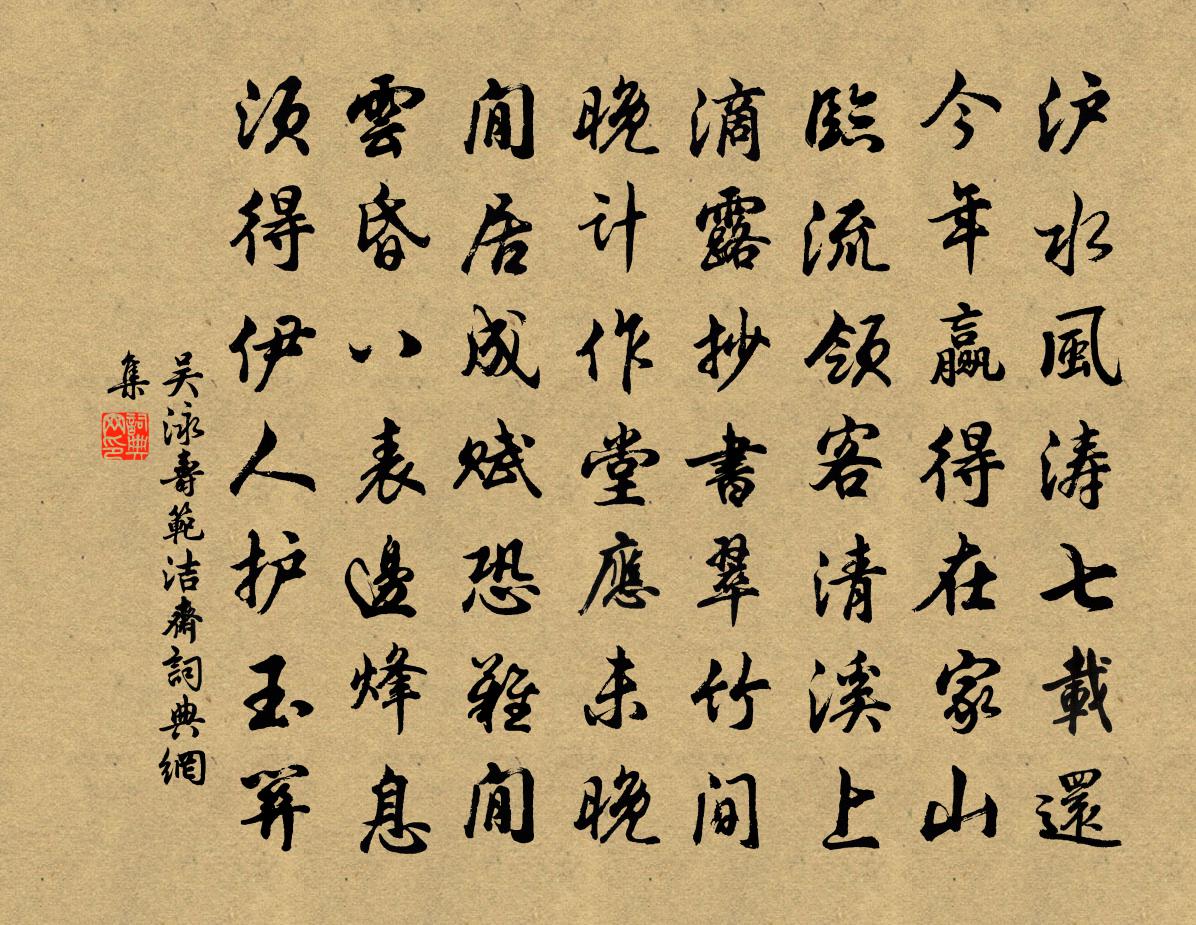 沪水風涛七載還
今年贏得在家山
臨流領客清溪上
滴露抄書翠竹間
晚计作堂應未晚
閒居成赋恐難閒
雲昏八表邊烽息
须得伊人护玉關
吴泳壽範洁齋詞典網
集
詞典網印